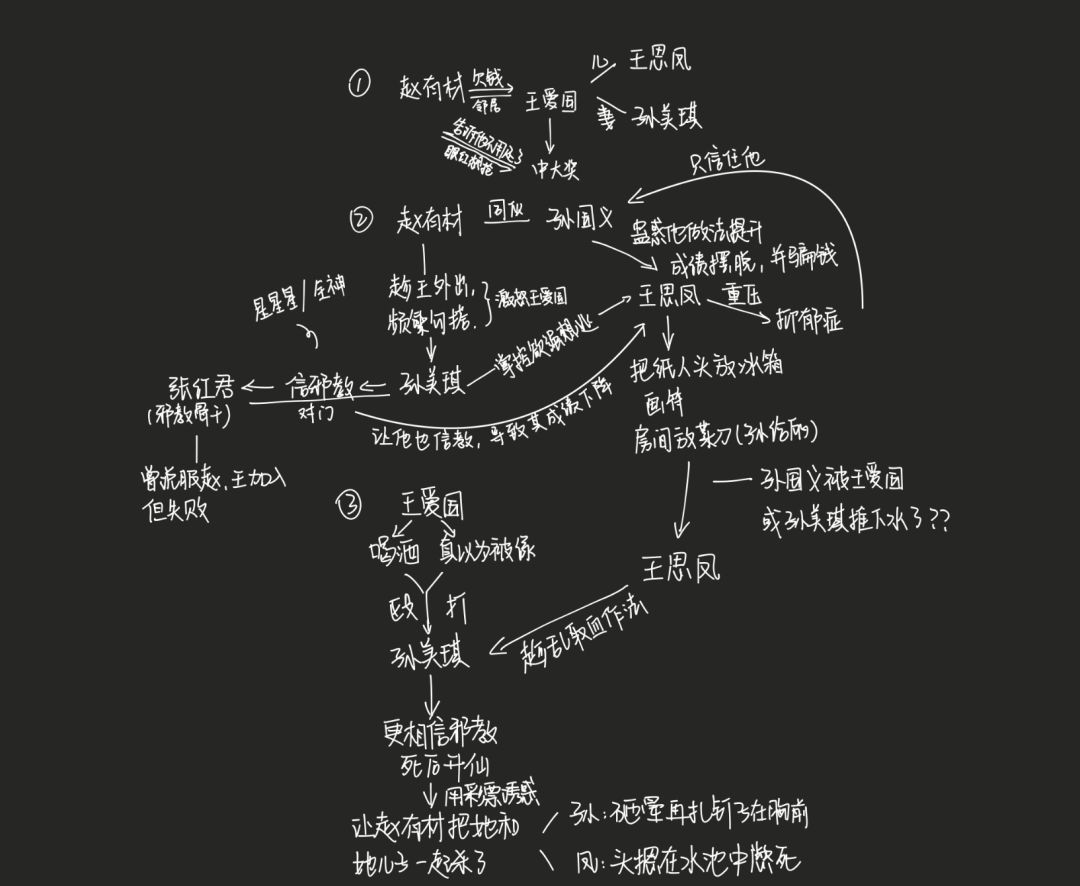 ① 赵有材 欠钱 邻居 王爱国
儿 王思凤
妻 孙美琪
眼红
中大奖
只信任他
② 赵有材 同伙 孙国义
蛊惑他做法提升
成绩摆脱，并骗钱
王思凤 重压
抑郁症
趁王外出，
频繁勾搭.
激怒王爱国
星星星/全神
掌控欲强
张红君
(邪教骨干)
信邪教
对门
孙美琪
让他也信教，导致其成绩下降
把纸人头放冰箱
房间放菜刀(孙给的)
曾说服赵、王加入
但失败
孙国义被王爱国
或孙美琪推下水了??
③ 王爱国
喝酒 真以为被绿
殴打
孙美琪
王思凤
趁乱取血作法
更相信邪教
死后升仙
用彩票诱惑
让赵有材把她和
她儿子一起杀了
孙：砸晕再扎钉子在胸前
凤：头摁在水池中憋死